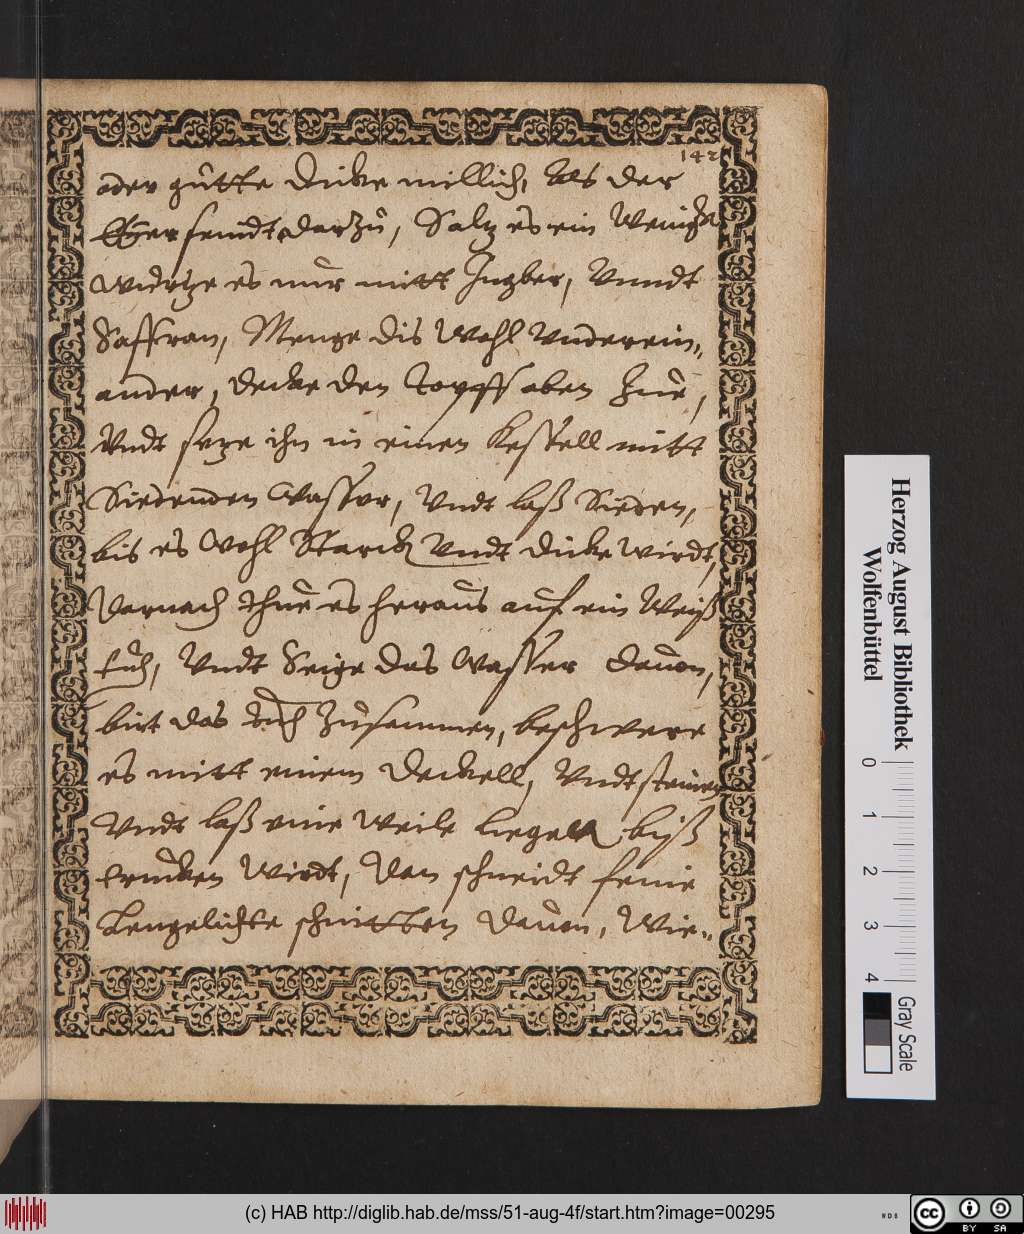 142
oder gutte dicke millich, als der
Eÿer seindt, darzu, Saltz es ein wenigh
wurtze es nur mitt Ingber, Vnndt
Saffran, Menge dis wohl Vnderein„
ander, decke den topff oben zue,
Vndt seze ihn in einen kessell mitt
Siedenden wasser, Vndt laß Sieden,
bis es wohl Starck Vndt dicke wirdt,
Darnach thue es heraus auf ein weiß
tuch, Vndt Seige das wasser dauon,
bint das tuch zusammen, beschwere
es mitt einem deckell, Vndt steinen
Vndt laß eine weile liegen biß
trucken wirdt, Dan schneidt feine
lengelichte schnitten dauon, wie„
Herzog August Bibliothek
Wolfenbüttel
0 1 2 3 4
Gray Scale
(c) HAB http://diglib.hab.de/mss/51-aug-4f/start.htm?image=00295
WDB
cc BY SA